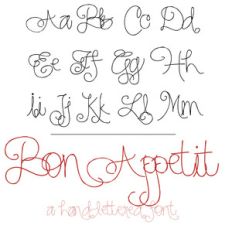 Aa Bb Cc Dd
Ee Ff Gg Hh
Ii Jj Kk Ll Mm
Bon Appetit
a hand lettered font